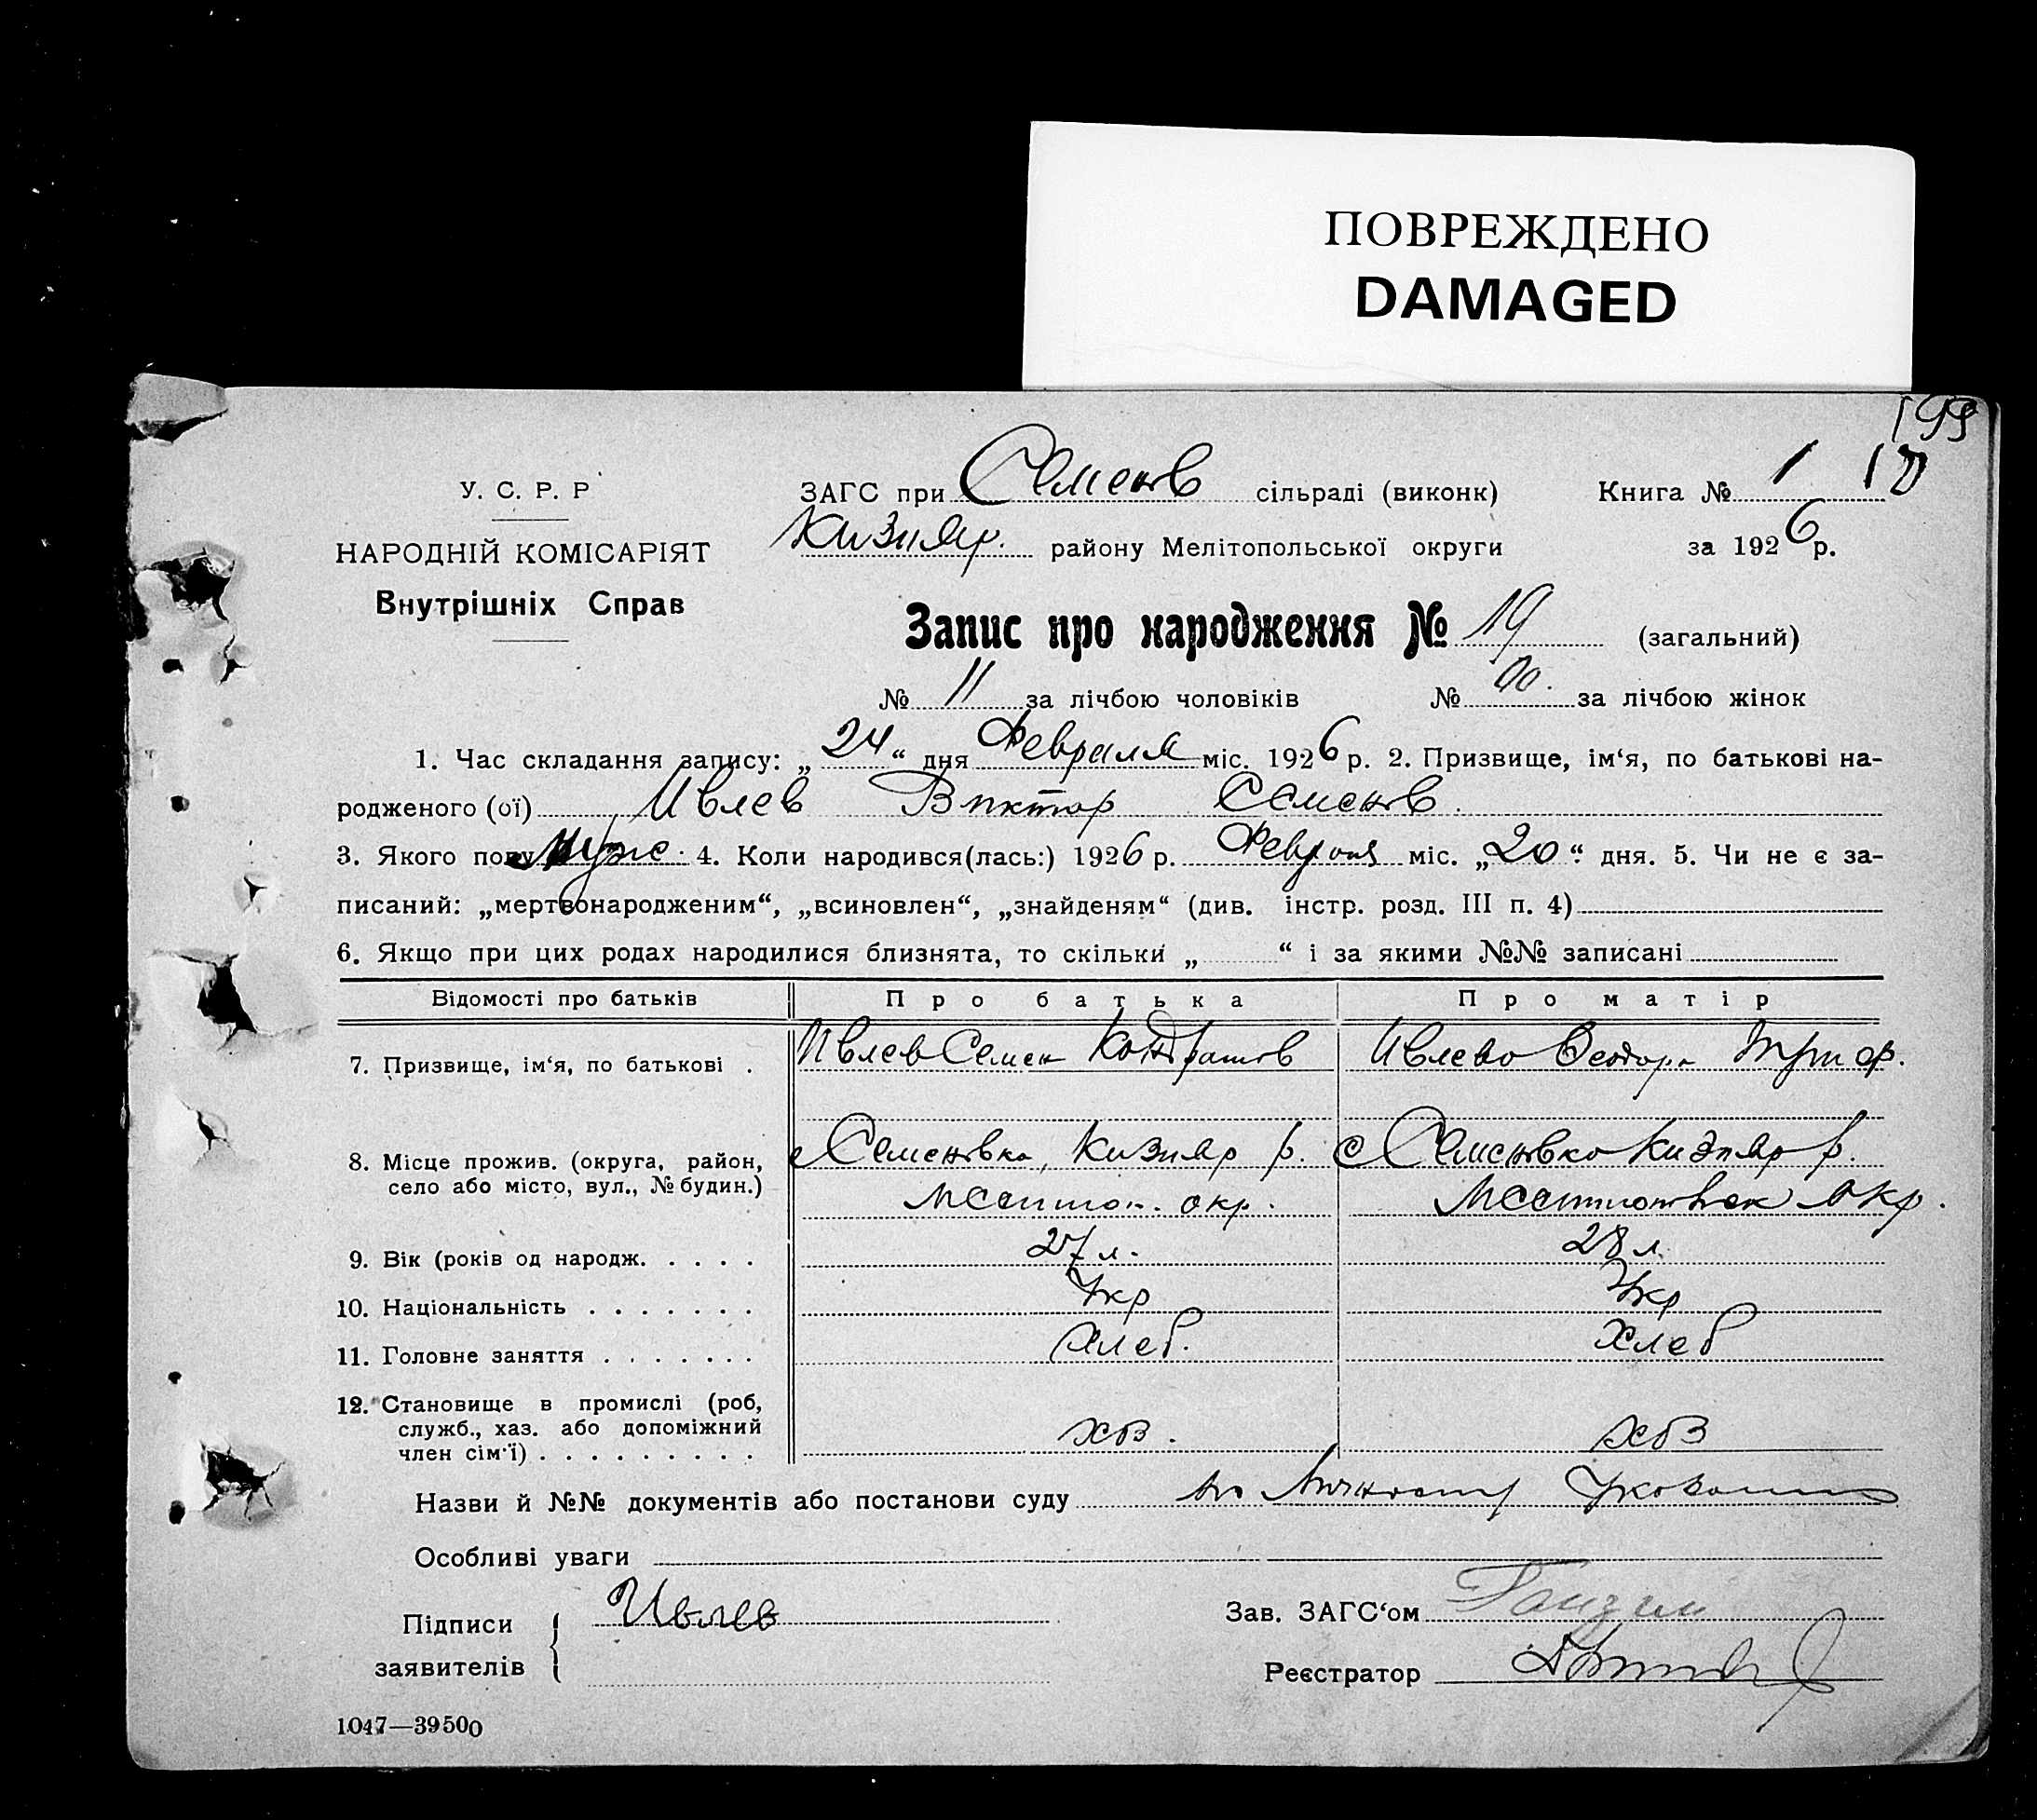 ПОВРЕЖДЕНО
DAMAGED
199
У. С. Р. Р
НАРОДНІЙ КОМІСАРІЯТ
Внутрішніх Справ
ЗАГС при Семенов сільраді (виконк) Книга № 1 10
Кизияр. району Мелітопольської округи за 1926 р.
Запис про народження № 19 (загальний)
№ 11 за лічбою чоловіків № за лічбою жінок
1. Час складання запису: „24“ дня Февраля міс. 1926 р. 2. Призвище, ім‘я, по батькові на-
родженого (ої) Ивлев Виктор Семенов.
3. Якого полу муж. 4. Коли народився(лась:) 1926 р. Февраля міс. „20“ дня. 5. Чи не є за-
писаний: „мертвонародженим“, „всиновлен“, „знайденям“ (див. інстр. розд. III п. 4)
6. Якщо при цих родах народилися близнята, то скільки „ “ і за якими №№ записані
Відомості про батьків Про батька Про матір
7. Призвище, ім‘я, по батькові . Ивлев Семен Кондратов Ивлева Феодора Триф.
8. Місце прожив. (округа, район, с Семеновка, Кизияр р. с Семеновка Кизияр р.
село або місто, вул., № будин.) Мелитоп. окр. Мелитопольск окр.
9. Вік (років од народж. . . . . 27 л. 28 л.
10. Національність . . . . . . . Укр Укр
11. Головне заняття . . . . . . . Хлеб. Хлеб
12. Становище в промислі (роб,
служб., хаз. або допоміжний хоз. хоз
член сім‘ї) . . . . . . . . .
Назви й №№ документів або постанови суду по Личност
Особливі уваги
Підписи Ивлев Зав. ЗАГС‘ом
заявителів Реєстратор
1047—39500